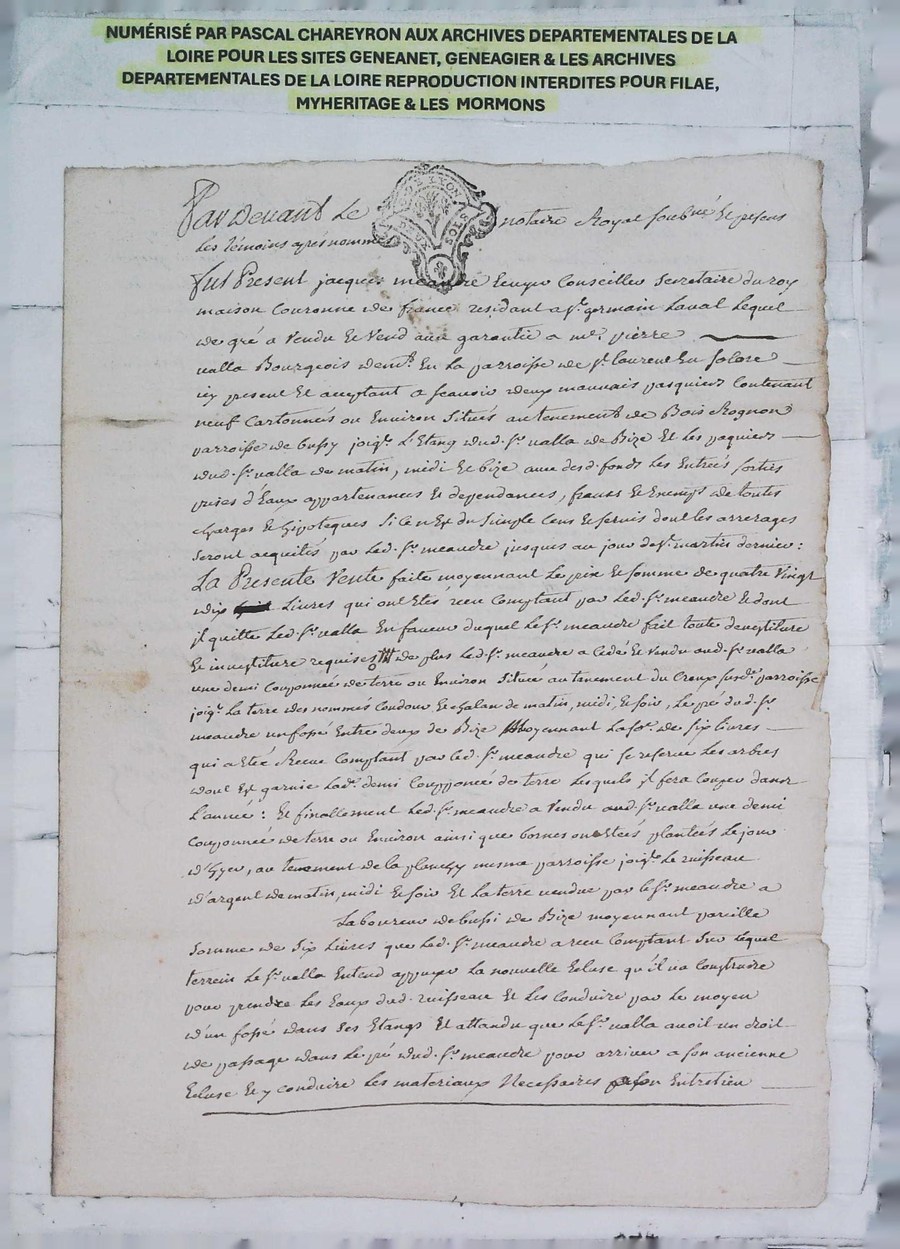 NUMÉRISÉ PAR PASCAL CHAREYRON AUX ARCHIVES DEPARTEMENTALES DE LA
LOIRE POUR LES SITES GENEANET, GENEAGIER & LES ARCHIVES
DEPARTEMENTALES DE LA LOIRE REPRODUCTION INTERDITES POUR FILAE,
MYHERITAGE & LES MORMONS
Par devant Le notaire Royal soubné Et presens
Les témoins après nommé
DEUX SOLS
fut Present jacques meandre Ecuyer Conseiller Secretaire du roy
maison Couronne de france residant a St. germain Laval Lequel
de gré a Vendu Et Vend avec garantie a mr. pierre
nalla Bourgeois dem.t En La parroisse de St. Laurent En Solore
icy present Et acceptant a scavoir deux mauvais pasquiers Contenant
neuf Cartonnés ou Environ Situés au tenement de Bois Rognon
parroisse de bussy joig.t L'Etang dud. Sr. nalla de Bize Et Les paquiers
dud. Sr. nalla de matin, midi Et bize avec desd. fonds Les Entrées sorties
prises d'Eaux appartenances Et dependances, francs Et Exempts de toutes
charges Et hipoteques Si ce n'Est du Simple Cens Et servis dont Les arrerages
Seront acquités par Led. Sr. meandre jusques au jour de St. martin dernier :
La Presente Vente faite moyennant Le prix Et somme de quatre Vingt
dix Livres qui ont Etés reçu Comptant par Led. Sr. meandre Et dont
il quitte Led. Sr. nalla En faveur duquel Le Sr. meandre fait toute devestiture
Et investiture requises de plus Led. Sr. meandre a Cédé Et Vendu aud. Sr. nalla
une demi Coupponnée de terre ou Environ Située au tenement du Creux susd. parroisse
joig.t La terre des nommés Coudour Et chalan de matin, midi, Et soir, Le pré dud. Sr.
meandre un fossé Entre deux de Bize moyennant La so. de six Livres
qui a Etée Recue Comptant par Led. Sr. meandre qui se reserve Les arbres
dont Est garnie Lad. demi Coupponnée de terre Lesquels il fera Couper dans
L'année : Et finallement Led. Sr. meandre a Vendu aud. Sr. nalla une demi
Coupponnée de terre ou Environ ainsi que bornes ont Etées plantées Le jour
d'hyer, au tenement de la planchy mesme parroisse joig.t Le ruisseau
d'argent de matin, midi Et soir Et La terre vendue par Le Sr. meandre a
Laboureur de bussi de Bize moyennant pareille
Somme de Six Livres que Led. Sr. meandre a reçu Comptant Sur Lequel
terrein Le Sr. nalla Entend appuyer La nouvelle Ecluse qu'il va Construire
pour prendre Les Eaux dud. ruisseau Et Les Conduire par Le moyen
d'un fossé dans Ses Etangs Et attandu que Le Sr. nalla avoit un droit
de passage dans Le pré dud. Sr. meandre pour arriver a son ancienne
Ecluse Et y conduire Les materiaux Necessaires son Entretien